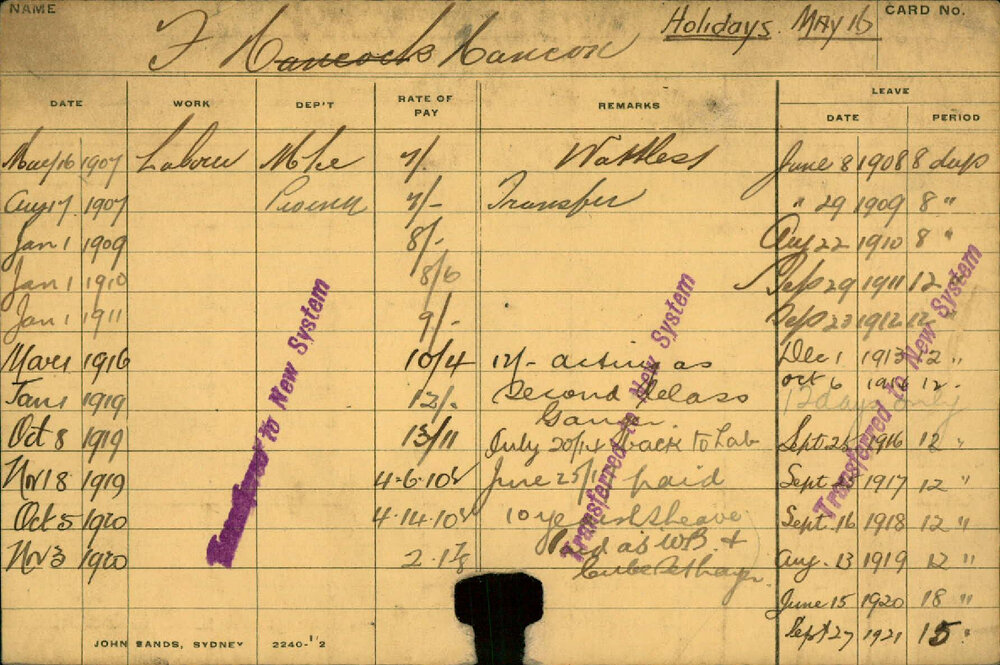 NAME
Holidays. MAY 16
CARD No.
F Hancock Hancon
DATE WORK DEP'T RATE OF PAY REMARKS LEAVE
DATE PERIOD
May 16 1907 Labour 7/- Wattless June 8 1908 8 days
Aug 17 1907 7/- Transfer " 29 1909 8 "
Jan 1 1909 8/- Aug 22 1910 8 "
Jan 1 1910 8/6 Sep 29 1911 12 "
Jan 1 1911 9/- Sep 23 1912 12 "
Mar 1 1916 10/4 12/- acting as Dec 1 1913 12 "
Oct 6 12 -
Jan 1 1919 12/- Second Class 12 days only
Ganger
Oct 8 1919 13/11 July 20/14 back to Lab Sept 1916 12 "
Nov 18 1919 4-6-10½ June 25/ paid Sept 1917 12 "
Oct 5 1920 4-14-10½ 10 leave Sept. 16 1918 12 "
Nov 3 1920 2-1 as WB & Aug. 13 1919 12 "
Cube
June 15 1920 18 "
Sept 27 1921 15.
Transferred to New System
Transferred to New System
Transferred to New System
JOHN SANDS, SYDNEY 2240-1/2